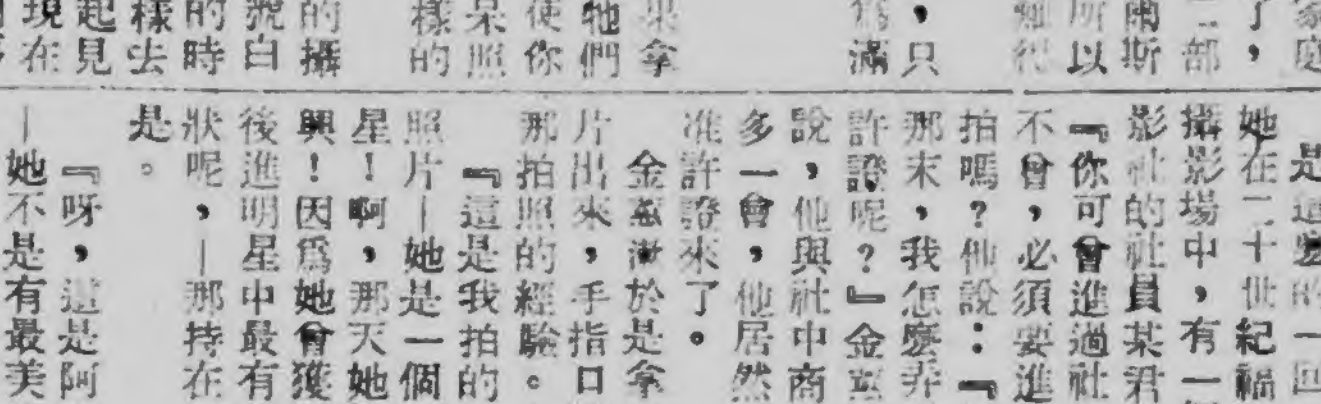 家庭
了，
二部
爾斯
所以
只
，
滿
果拿
牠們
使你
某照
樣的
的攝
號白
的時
樣去
起見
現在
是這麼的一回
她在二十世紀福
攝影場中，有一
影社的社員某君
『你可會進過社
不會，必須要進
拍嗎？他說：『
那末，我怎麼弄
許證呢？』金
說，他與社中商
多一會，他居然
准許證來了。
金於是拿
片出來，手指口
那拍照的經驗。
『這是我拍的
照片—她是一個
星！啊，那天她
興！因爲她會獲
後進明星中最有
狀呢，—那持在
是。
『呀，這是阿
—她不是有最美